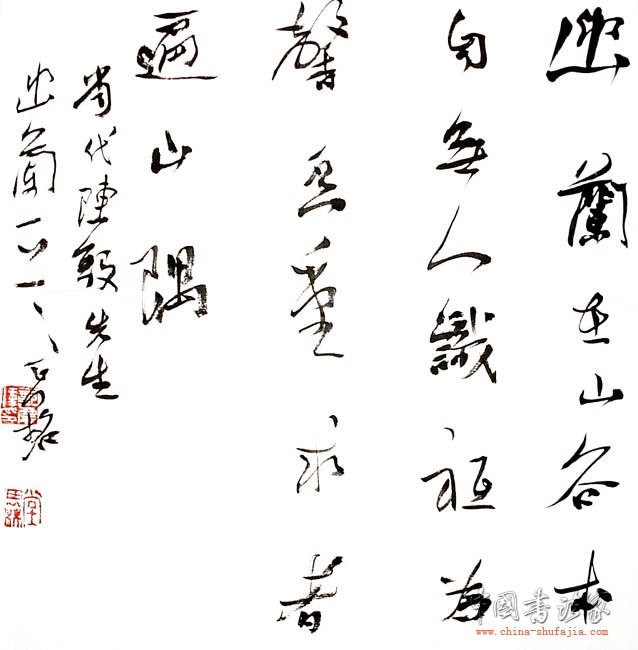 幽蘭在山谷本
自無人識祗為
馨香重求者
遍山隅
当代陳毅先生
幽蘭
中国書法家
www.china-shufajia.com